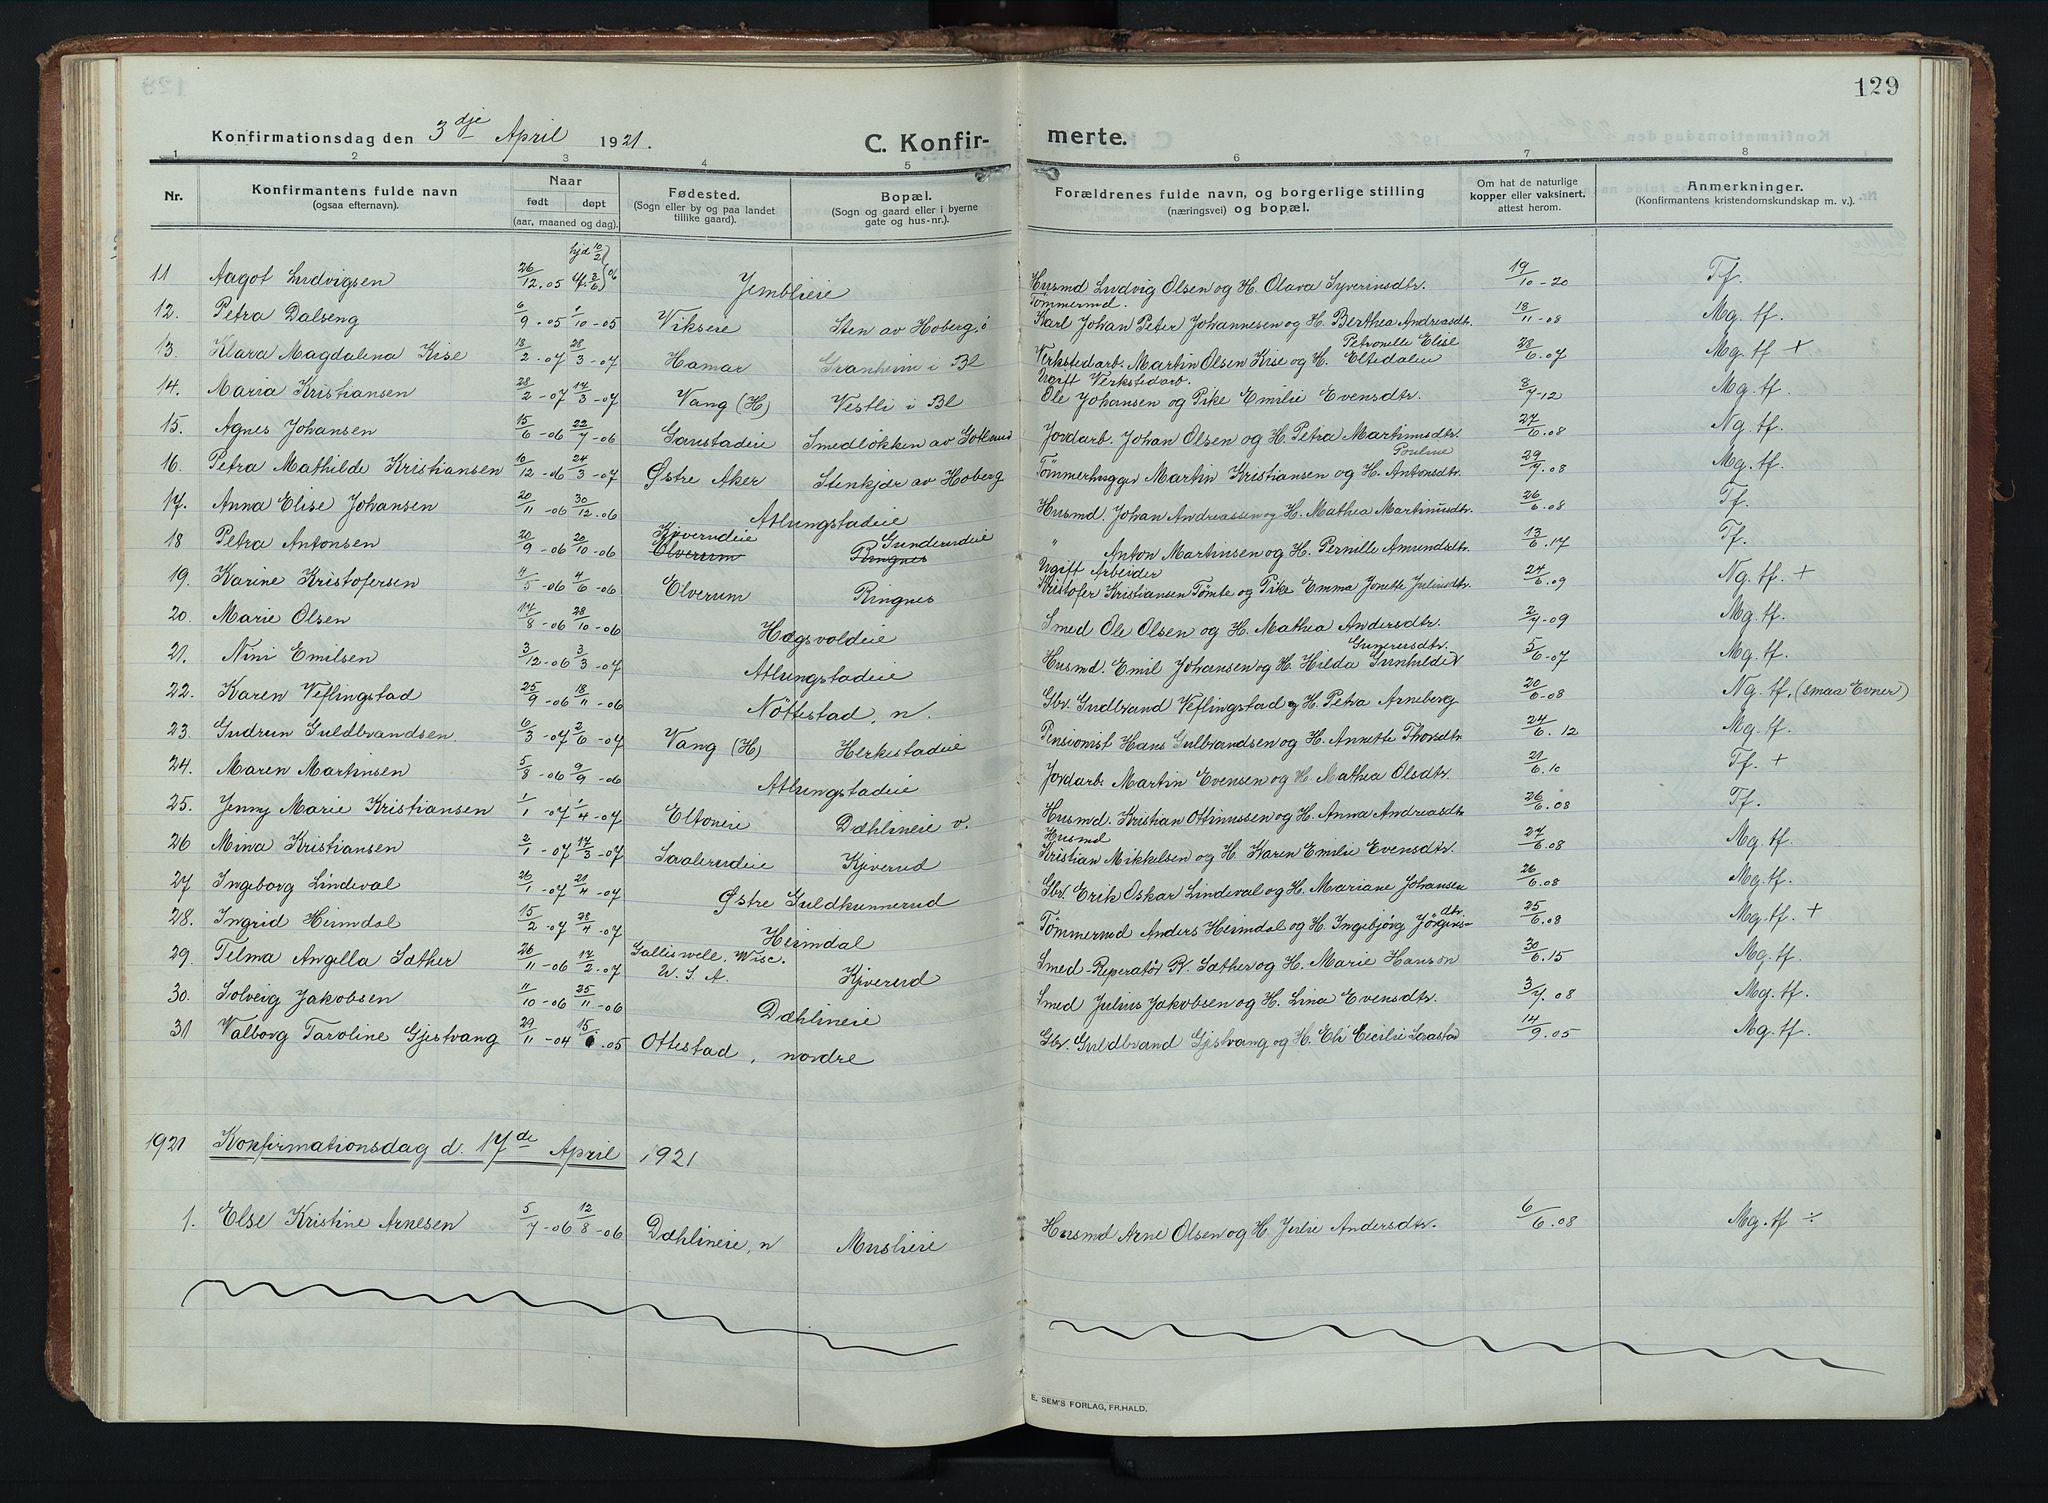 129
Konfirmationsdag den 3dje April 1921. C. Konfir- merte.
1 2 3 4 5 6 7 8
Nr. Konfirmantens fulde navn (ogsaa efternavn). Naar født døpt (aar, maaned og dag). Fødested. (Sogn eller by og paa landet tillike gaard). Bopæl. (Sogn og gaard eller i byerne gate og hus-nr.). Forældrenes fulde navn, og borgerlige stilling (næringsvei) og bopæl. Om hat de naturlige kopper eller vaksinert, attest herom. Anmerkninger. (Konfirmantens kristendomskundskap m. v.).
11 Aagot Ludvigsen 26/12.05 hjd 10/2 3/6 06 Jemblieie Husmd Ludvig Olsen og H. Olava Syverinsdtr. 19/10-20 Tf.
12. Petra Dalseng 6/9-05 1/10-05 Vikseie Sten av Hoberg, ö Tömmermd. Karl Johan Peter Johannesen og H. Berthea Andreasdtr. 18/11-08 Mg. tf.
13. Klara Magdalena Kise 18/2-07 28/3-07 Hamar Granheim i Bl Verkstedarb. Martin Olsen Kise og H. Petronelle Elise Eltedalen 28/6.07 Mg. tf +
14. Maria Kristiansen 28/2-07 17/3-07 Vang (H) Vestli i Bl Ugift Verkstedarb. Ole Johansen og Pike Emilie Evensdtr. 8/7-12 Mg. tf.
15. Agnes Johansen 15/6-06 22/7-06 Gaustadeie Smedløkken av Gotlund Jordarb. Johan Olsen og H. Petra Martinusdtr. 27/6.08 Ng. tf.
16. Petra Mathilde Kristiansen 10/12-06 24/3-07 Østre Aker Stenkjær av Hoberg Tömmerhugger Martin Kristiansen og H. Pouline Antonsdtr. 29/7.08 Mg. tf.
17. Anna Elise Johansen 20/11-06 30/12.06 Atlungstadeie Husmd. Johan Andreassen og H. Mathea Martinusdtr. 26/6.08 Tf.
18 Petra Antonsen 20/9-06 20/10-06 Kjverudeie Elverum Gunderudeie Ringnes " Anton Martinsen og H. Pernille Amundsdtr. 13/6.17 Tf.
19. Karine Kristofersen 4/5-06 4/6-06 Elverum Ringnes Ugift Arbeider Kristofer Kristiansen Tömte og Pike Emma Jonette Juliusdtr. 24/6.09 Ng. tf. +
20. Marie Olsen 17/8-06 28/10-06 Hagsvoldeie Smed Ole Olsen og H. Mathea Andersdtr. 2/7-09 Mg. tf.
21. Nini Emilsen 3/12-06 3/3-07 Atlungstadeie Husmd. Emil Johansen og H. Hilda Gunhilde Gunerusdtr. 5/6-07 Mg. tf.
22. Karen Veflingstad 25/9-06 18/11-06 Nöttestad, n. Gbr. Gudbrand Veflingstad og H. Petra Arneberg 20/6-08 Ng. tf. (smaa Evner)
23. Gudrun Guldbrandsen. 6/3-07 2/6-07 Vang (H) Herkestadeie Pensionist Hans Gulbrandsen og H. Annette Thorsdtr 24/6.12 Mg. tf.
24. Maren Martinsen 5/8-06 9/9-06 Atlungstadeie Jordarb. Martin Evensen og H. Mathea Olsdtr. 21/6.10 Tf. +
25. Jenny Marie Kristiansen 1/1-07 1/4-07 Eltoneie Dæhlineie v. Husmd. Kristian Ottinussen og H. Anna Andreasdtr 26/6.08 Tf.
26 Mina Kristiansen 2/1-07 17/3-07 Saalerudeie Kjverud Husmd Kristian Mikkelsen og H. Karen Emilie Evensdtr. 27/6.08 Mg. tf.
27 Ingeborg Lindeval 26/1-07 21/4-07 Østre Guldkunnerud Gbr. Erik Oskar Lindeval og H. Mariane Johansen 26/6.08 Mg. tf.
28. Ingrid Heimdal 15/2-07 28/4-07 Heimdal Tömmermd Anders Heimdal og H. Ingebjørg Jörgensdtr. 25/6.08 Mg. tf. +
29. Telma Angella Sæther 26/11-06 17/2.07 Galliswele, Wisc. U. S. A. Kjverud Smed-Reperatör P. Sæther og H. Marie Hanson 30/6.15 Mg. tf.
30. Solveig Jakobsen 11/10-06 25/11-06 Dæhlineie Smed Julius Jakobsen og H. Lina Evensdtr. 3/7.08 Mg. tf.
31 Valborg Taroline Gjestvang 29/11-04 15/6.05 Ottestad, nordre Gbr. Guldbrand Gjestvang og H. Eli Cecilie Saastad 14/9.05 Mg. tf.
1921 Konfirmationsdag d. 17de April 1921
1. Else Kristine Arnesen 5/7-06 12/8-06 Dæhlineie, n Muslieie Husmd Arne Olsen og H. Julie Andersdtr. 6/6.08 Mg. tf ÷
E. SEM'S FORLAG, FR.HALD.